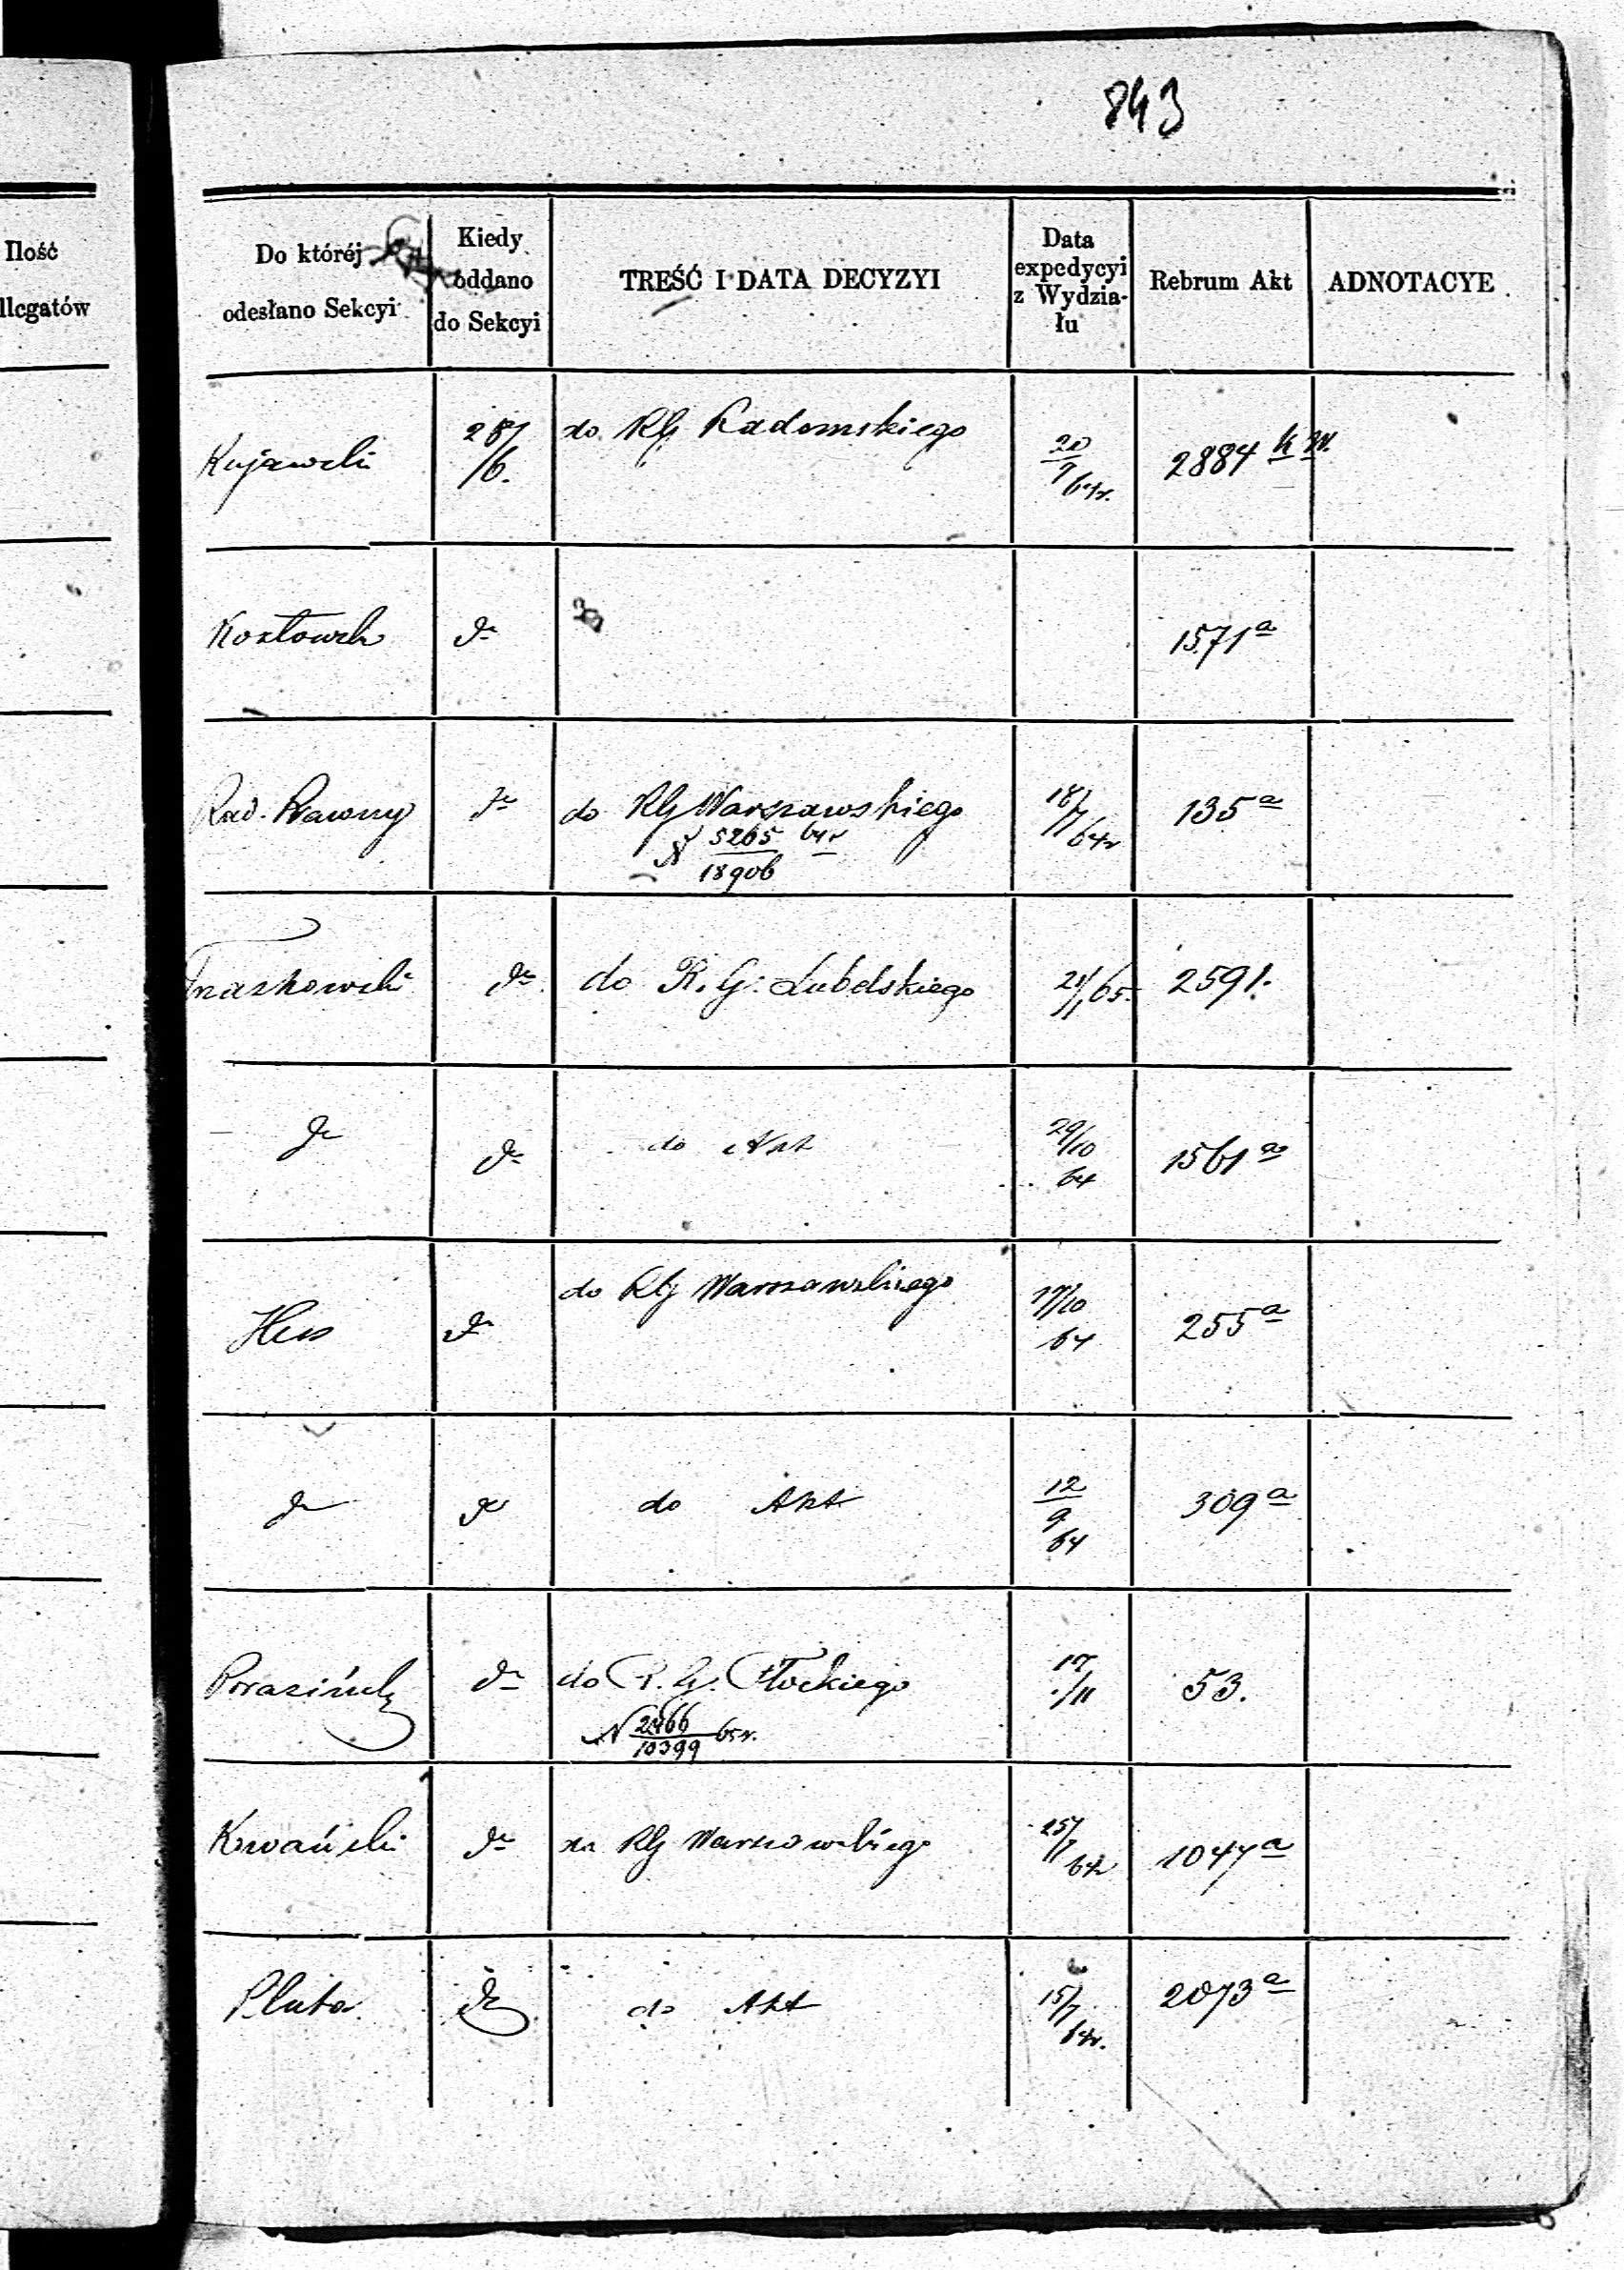 843
Ilość
llegatów
Do któréj
odesłano Sekcyi
Kiedy
oddano
do Sekcyi
TREŚĆ I DATA DECYZYI
Data
expedycyi
z Wydzia-
łu
Rebrum Akt
ADNOTACYE
Kujawski
28/
/6.
do RG Radomskiego
20
9/64r.
2884
Kozłowski
do
1571 a
Rad. Prawny
do
do RG Warszawskiego
N 5265 64r
18906
18/
/7 64r
135 a
Traszkowski
do
do R. G. Lubelskiego
21/1 65.
2591.
do
do
do Akt
29/10
64
1561 a
Hess
do
do RG Warszawskiego
17/10
64
255 a
do
do
do Akt
12
9
64
309 a
do
do R. G. Płockiego
N 2466 65r.
10399
17
/11
53.
do
RG Warszawskiego
25/
/7 64r
1047 a
Pluta
do
do Akt
15/7
64r.
2073 a